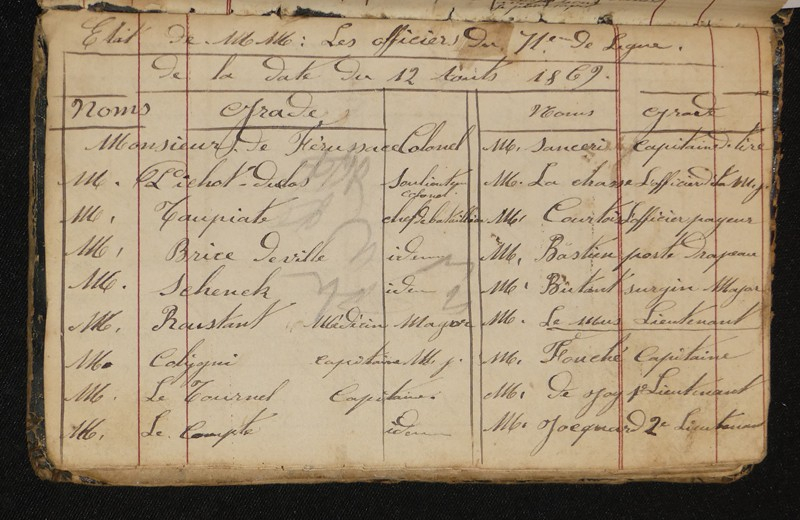 Etat de MM : Les officiers du 71e de Ligne.
de la date du 12 Aouts 1869.
Noms Grade
Monsieur de Férussac Colonel
M. Pichot-Duclos Lieutenant
colonel
M. Taupiate chef de bataillon
M. Brice deville idem
M. Schenck idem
M. Roustant Médecin Major
M. Coligni capitaine M. j.
M. Le Tournel Capitaine
M. Le Compte idem
Noms Grade
M. Sanceri Capitaine de tire
M. La chasse L'officier d. M. j.
M. Courtois L'officier payeur
M. Bastien porte Drapeau
M. Butant surgin Major
M. Le Mus Lieutenant
M. Fouché Capitaine
M. de Joy 1e Lieutenant
M. Jocquard 2e Lieutenant